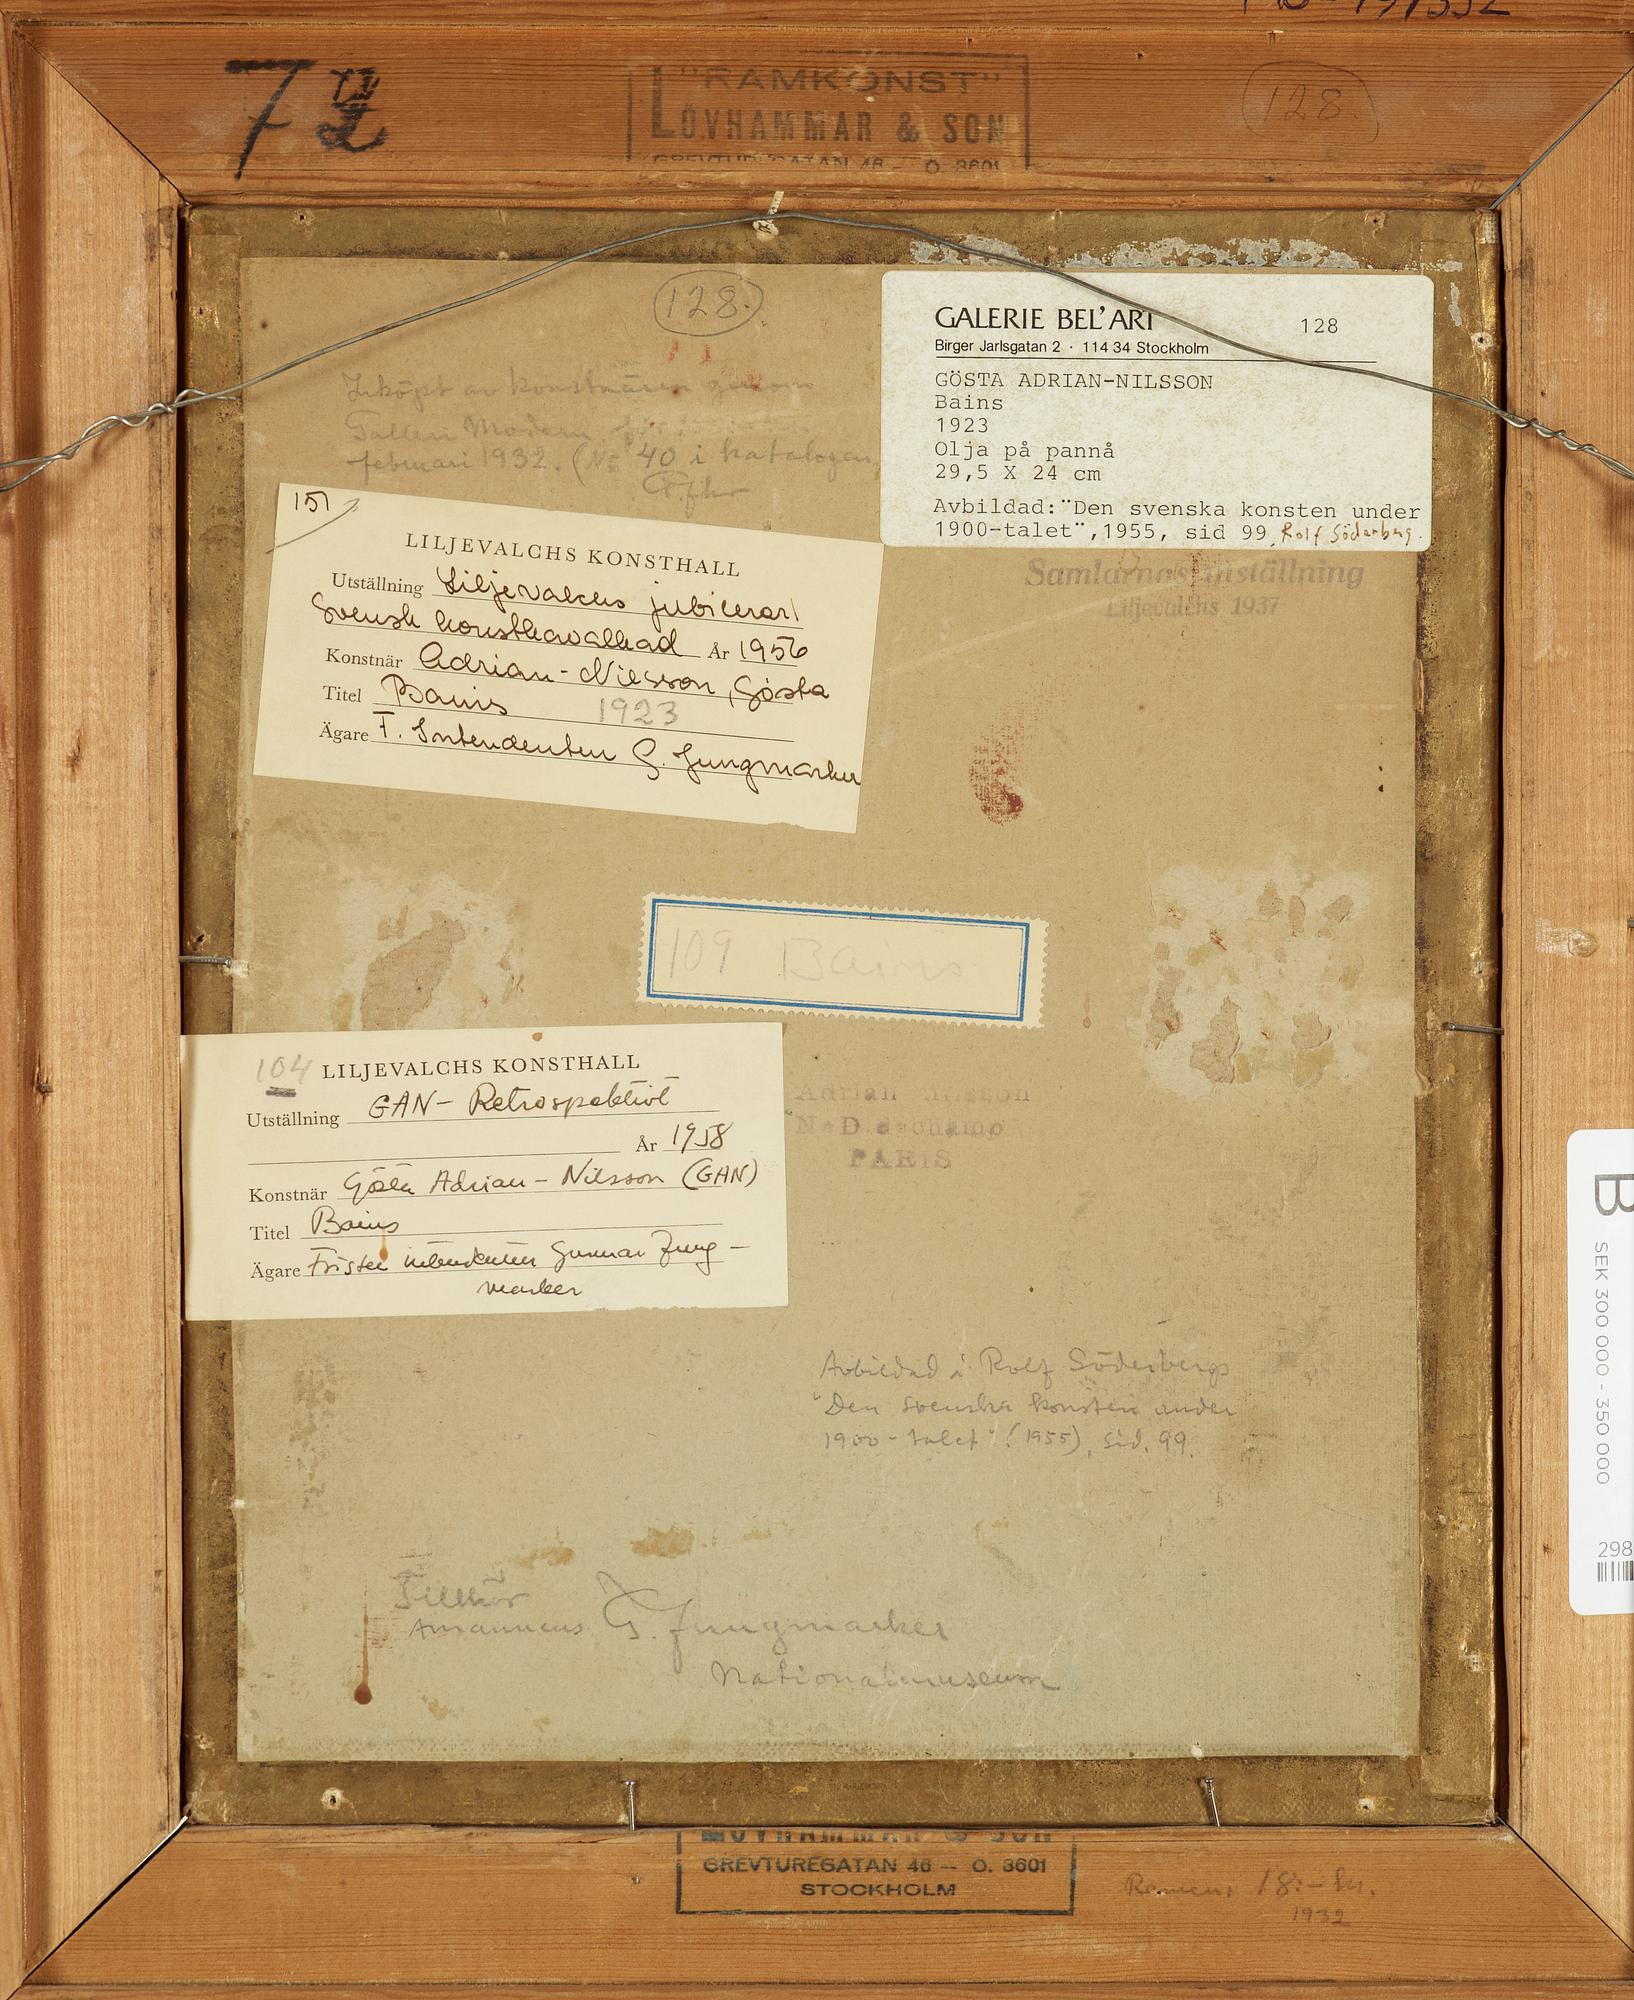 72
"RAMKONST"
LÖVHAMMAR & SON
GREVTUREGATAN 46 — Ö. 3601
128.
128.
Inköpt av konstnären genom
Galleri Modern
februari 1932. (No 40 i katalogen
GALERIE BEL'ART
128
Birger Jarlsgatan 2 · 114 34 Stockholm
GÖSTA ADRIAN-NILSSON
Bains
1923
Olja på pannå
29,5 X 24 cm
Avbildad:"Den svenska konsten under
1900-talet",1955, sid 99, Rolf Söderberg.
151
LILJEVALCHS KONSTHALL
Utställning Liljevalchs jubileum
Svensk konstkavalkad År 1956
Konstnär Adrian-Nilsson, Gösta
Titel Bains 1923
Ägare F. Intendenten G. Jungmarker
Samlarnas utställning
Liljevalchs 1937
109 Bains
104
LILJEVALCHS KONSTHALL
Utställning GAN - Retrospektivt
År 1958
Konstnär Gösta Adrian-Nilsson (GAN)
Titel Bains
Ägare Förste intendenten Gunnar Jung-
marker
Adrian Nilsson
PARIS
Avbildad i Rolf Söderbergs
"Den svenska konsten under
1900-talet" (1955), sid. 99.
Tillhör
Amanuens G. Jungmarker
Nationalmuseum
B
SEK 300 000 - 350 000
298
LÖVHAMMAR & SON
GREVTUREGATAN 46 — Ö. 3601
STOCKHOLM
Ramen, 18:- kr.
1932